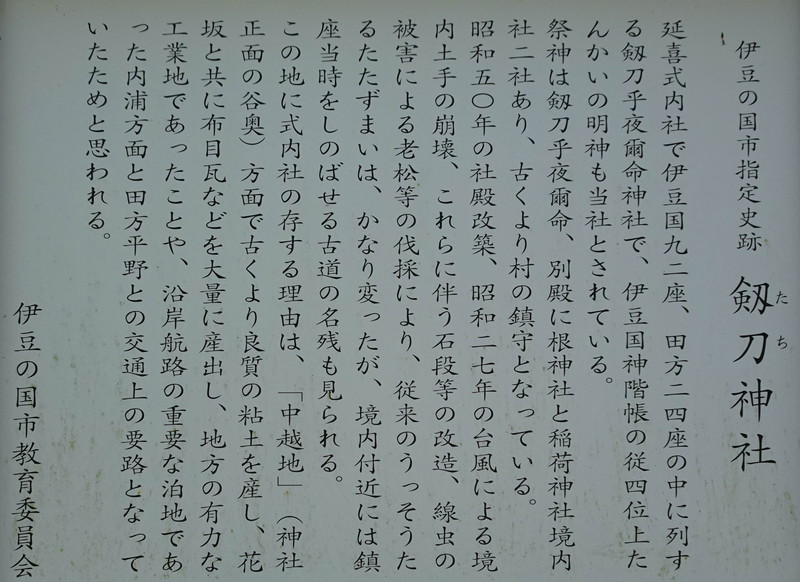 伊豆の国市指定史跡 剱刀神社
たち
延喜式内社で伊豆国九二座、田方二四座の中に列す
る剱刀乎夜爾命神社で、伊豆国神階帳の従四位上た
んかいの明神も当社とされている。
祭神は剱刀乎夜爾命、別殿に根神社と稲荷神社境内
社二社あり、古くより村の鎮守となっている。
昭和五〇年の社殿改築、昭和二七年の台風による境
内土手の崩壊、これらに伴う石段等の改造、線虫の
被害による老松等の伐採により、従来のうっそうた
るたたずまいは、かなり変ったが、境内付近には鎮
座当時をしのばせる古道の名残も見られる。
この地に式内社の存する理由は、「中越地」(神社
正面の谷奥)方面で古くより良質の粘土を産し、花
坂と共に布目瓦などを大量に産出し、地方の有力な
工業地であったことや、沿岸航路の重要な泊地であ
った内浦方面と田方平野との交通上の要路となって
いたためと思われる。
伊豆の国市教育委員会